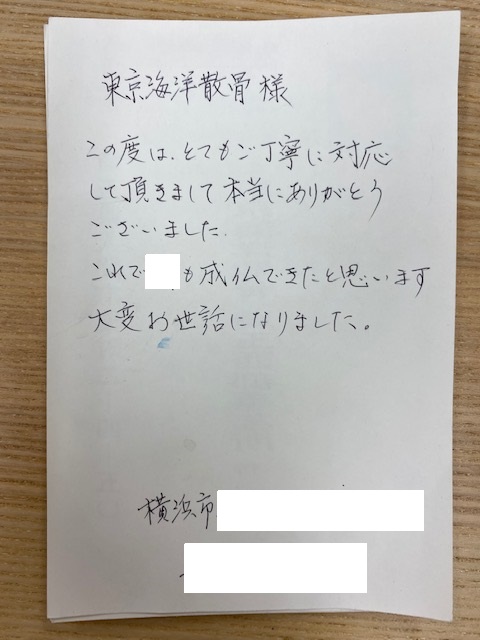 東京海洋散骨様
この度は、とてもご丁寧に対応
して頂きまして本当にありがとう
ございました.
これで も成仏できたと思います
大変お世話になりました。
横浜市